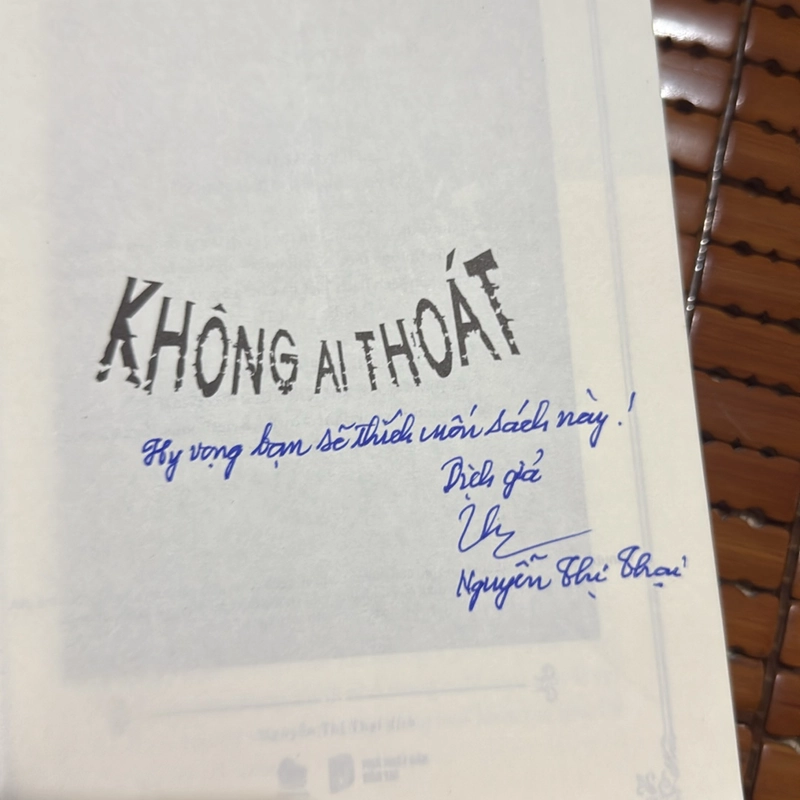 KHÔNG AI THOÁT
Hy vọng bạn sẽ thích cuốn sách này!
Dịch giả
Nguyễn Thị Thại